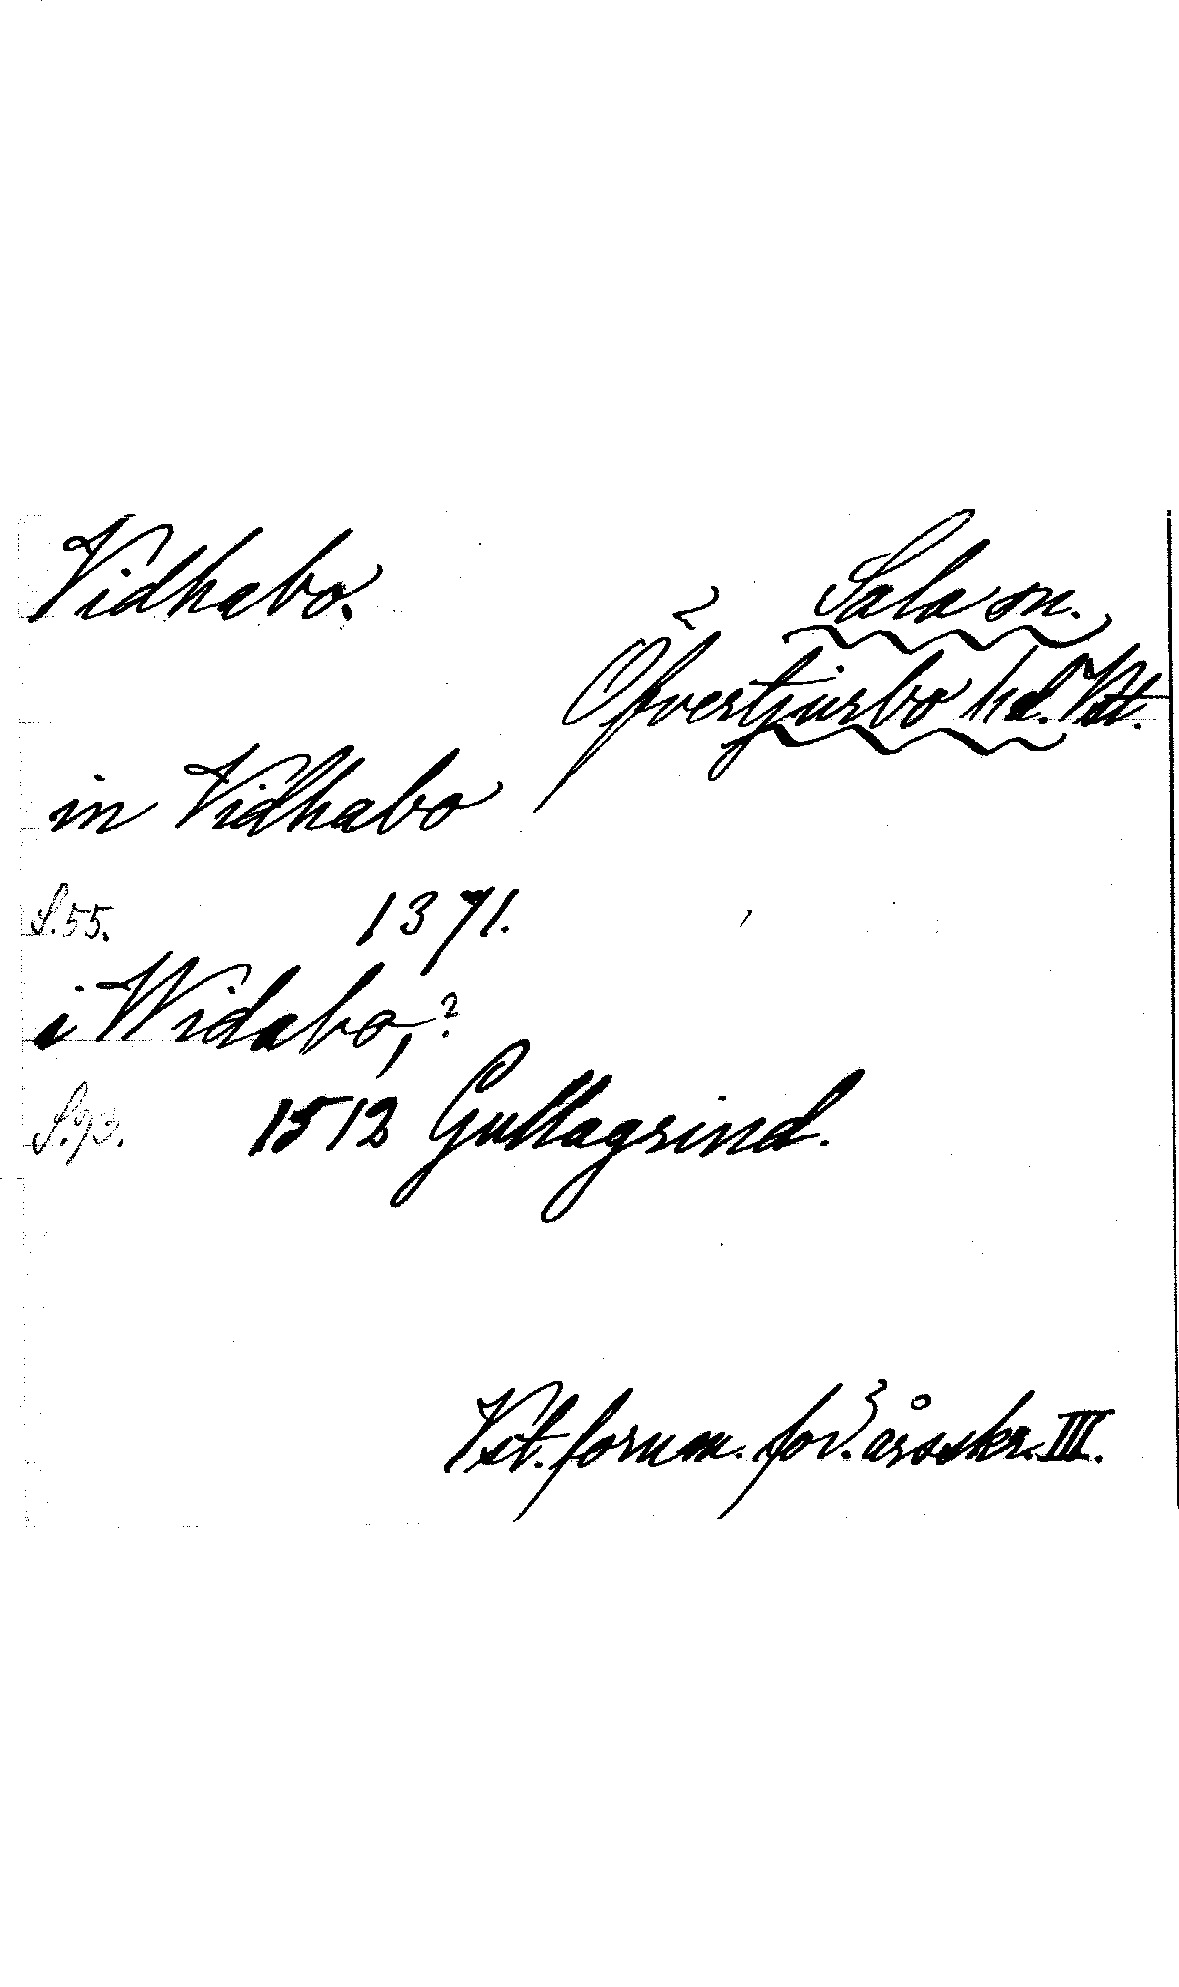 Vidhabo.
Sala sn.
Öfvertjurbo hd. Vstl.
in Vidhabo
S.55. 1371.
i Widabo,?
S.93. 1512 Gullagrind.
Vst. fornm. för. årsskr. III.